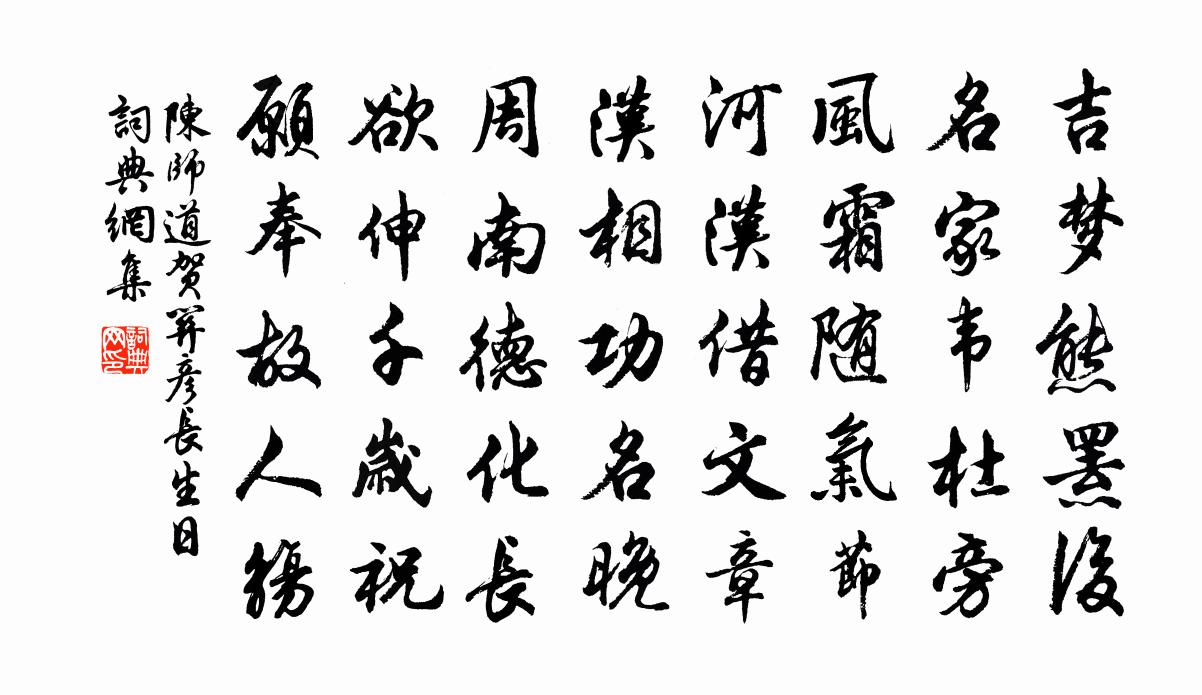 吉梦熊罴後
名家韦杜旁
風霜随氣節
河漢借文章
漢相功名晚
周南德化長
欲伸千歲祝
願奉故人觴
陳師道贺
彦長生日
詞典網集
詞典